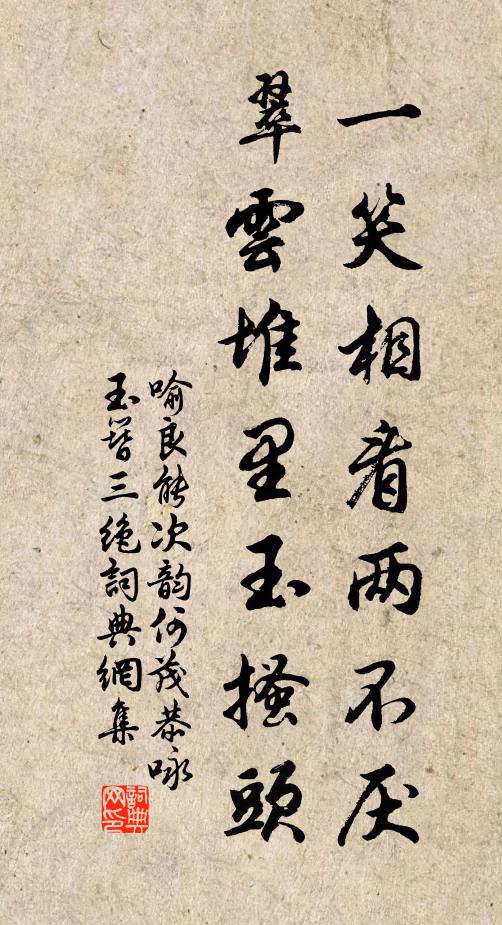 一笑相看两不厌
翠雲堆里玉搔頭
喻良能次韵何茂恭咏
玉簪三绝詞典網集
詞典
网印